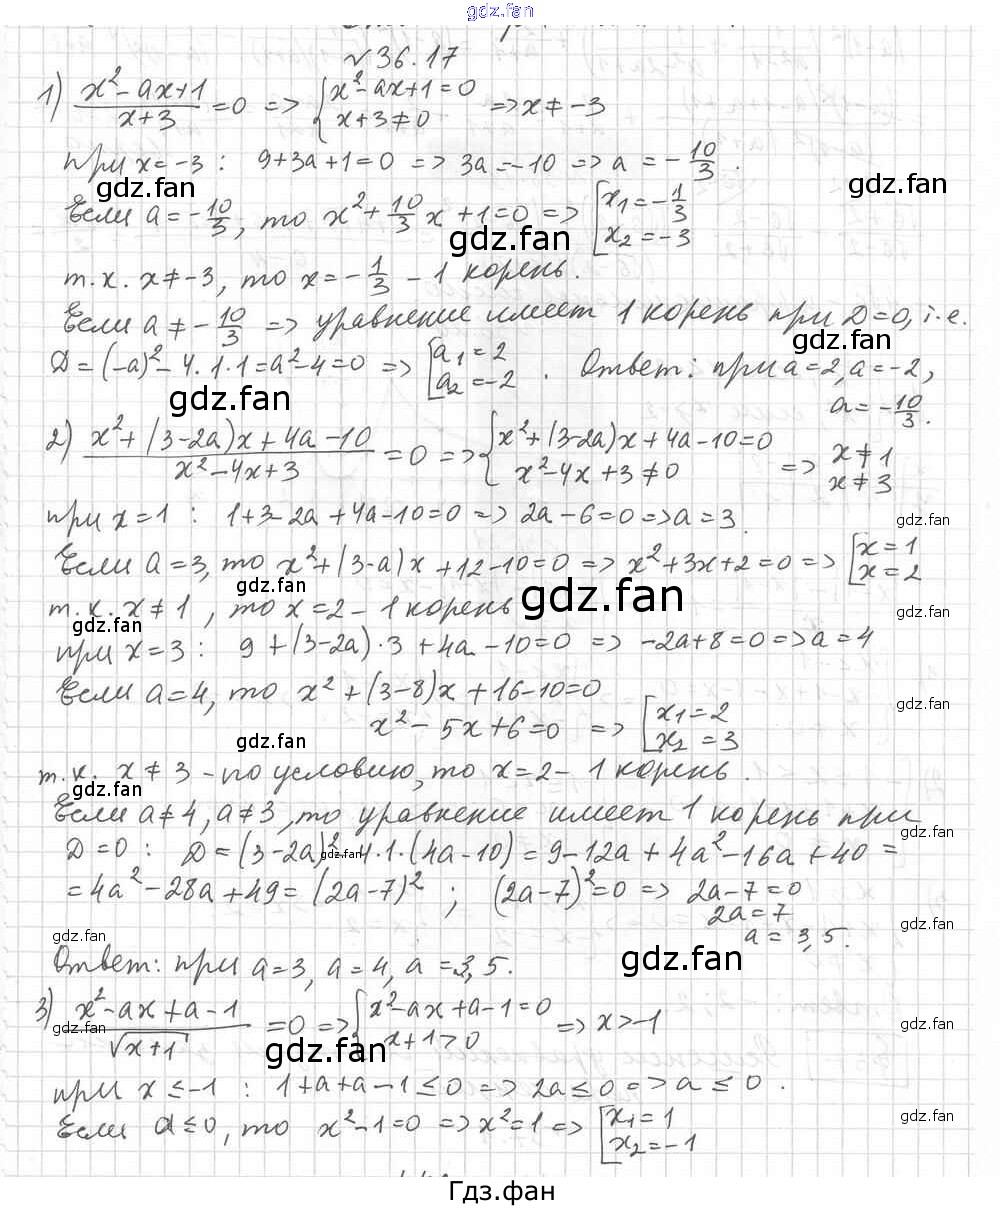 gdz.fan
№36.17
1) (x²-ax+1)/(x+3) =0 => { x²-ax+1=0 x+3≠0 => x≠-3
при x=-3: 9+3a+1=0 => 3a=-10 => a=-10/3.
gdz.fan gdz.fan
Если a=-10/3, то x²+10/3x+1=0 => [ x₁=-1/3 x₂=-3
gdz.fan
т.к. x≠-3, то x=-1/3 - 1 корень.
Если a≠-10/3 => уравнение имеет 1 корень при D=0, т.е.
gdz.fan
D=(-a)²-4·1·1=a²-4=0 => [ a₁=2 a₂=-2 . Ответ: при a=2, a=-2,
gdz.fan a=-10/3.
2) (x²+(3-2a)x+4a-10)/(x²-4x+3) =0 => { x²+(3-2a)x+4a-10=0 x²-4x+3≠0 => x≠1 x≠3
при x=1: 1+3-2a+4a-10=0 => 2a-6=0 => a=3.
gdz.fan
Если a=3, то x²+(3-a)x+12-10=0 => x²+3x+2=0 => [ x=1 x=2
gdz.fan gdz.fan
т.к. x≠1, то x=2 - 1 корень
gdz.fan gdz.fan
при x=3: 9+(3-2a)·3+4a-10=0 => -2a+8=0 => a=4
Если a=4, то x²+(3-8)x+16-10=0
gdz.fan
x²-5x+6=0 => [ x₁=2 x₂=3
gdz.fan
т.к. x≠3 - по условию, то x=2 - 1 корень.
gdz.fan
Если a≠4, a≠3, то уравнение имеет 1 корень при
gdz.fan
D=0: D=(3-2a)²-4·1·(4a-10)=9-12a+4a²-16a+40=
gdz.fan
=4a²-28a+49=(2a-7)²; (2a-7)²=0 => 2a-7=0
2a=7
gdz.fan
a=3,5.
gdz.fan
Ответ: при a=3, a=4, a=3,5.
gdz.fan
3) (x²-ax+a-1)/√(x+1) =0 => { x²-ax+a-1=0 x+1>0 => x>-1
gdz.fan gdz.fan gdz.fan
при x≤-1: 1+a+a-1≤0 => 2a≤0 => a≤0.
Если a≤0, то x²-1=0 => x²=1 => [ x₁=1 x₂=-1
gdz.fan
Гдз.фан